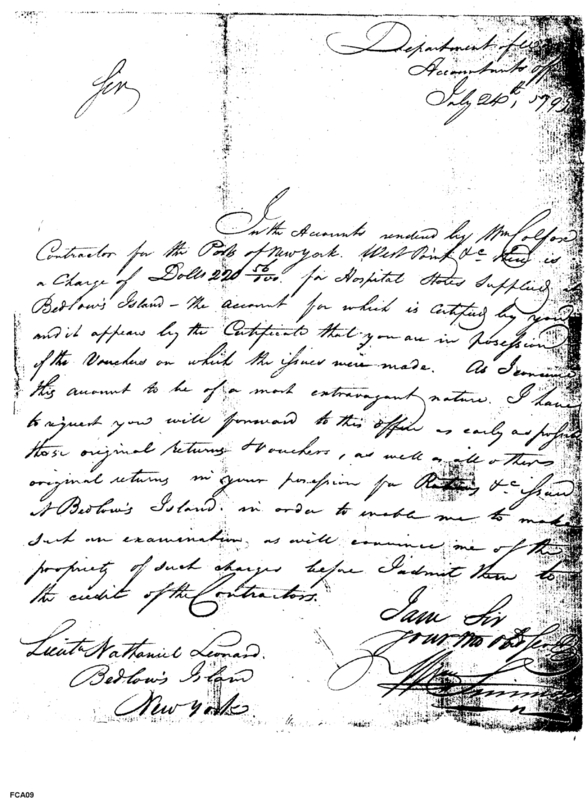 Department of
Accountants off
July 24th, 179
Sir
In the Accounts rendered by Wm Colfax
Contractor for the Posts of New York. West Point &c there is
a Charge of Dolls 228 56/100 for Hospital Stores Supplied
Bedlow's Island - the account for which is certified by you
and it appears by the Certificate that you are in possession
of the Vouchers on which the issues were made. As I conceive
this account to be of a most extravagant nature. I have
to request you will forward to this office as early as possible
those original returns & Vouchers, as well as all others
original returns in your possession for Rations &c issued
At Bedlow's Island. in order to enable me to make
such an examination, as will convince me of the
propriety of such charges before I admit them to
the credit of the Contractors.
I am Sir
Your Mo Obd Se
Wm Simmons
Lieut Nathaniel Leonard.
Bedlow's Island
New York
FCA09